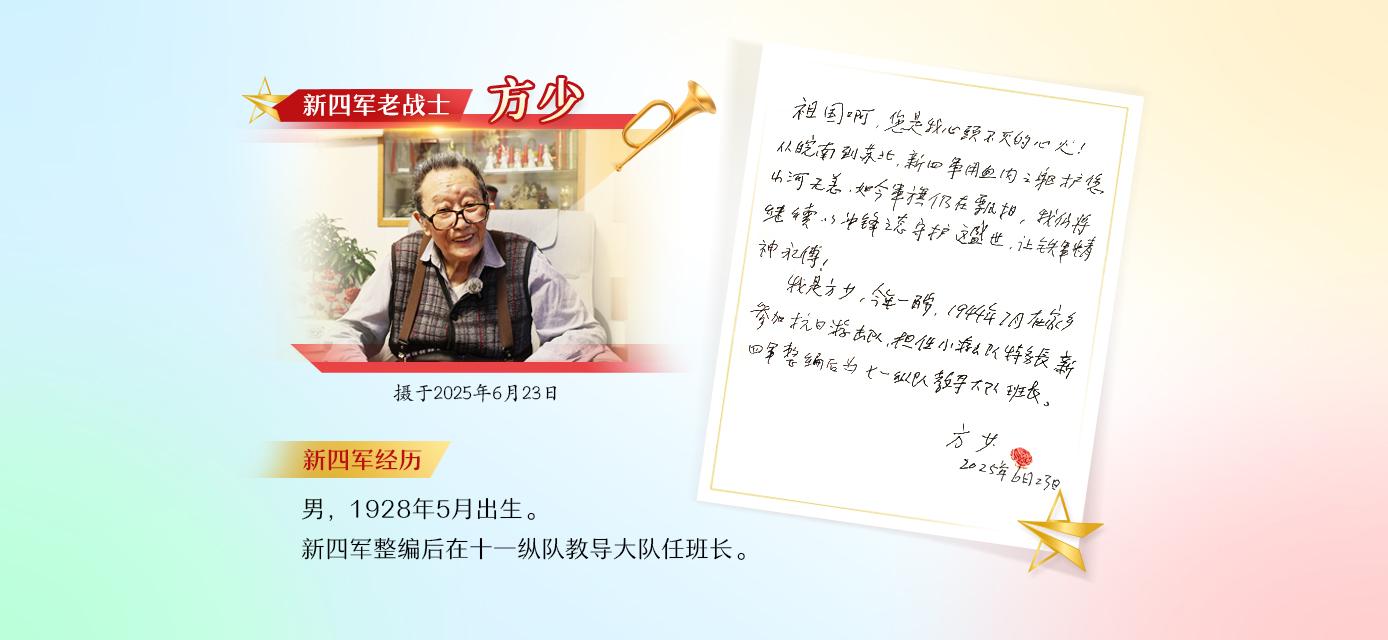 新四军老战士 方少
摄于2025年6月23日
新四军经历
男，1928年5月出生。
新四军整编后在十一纵队教导大队任班长。
祖国啊，您是我心头不灭的心火！
从皖南到苏北，新四军用血肉之躯护您
山河无恙，如今军旗仍在飘扬，我们将
继续以冲锋之态守护这盛世，让铁军精
神永傳！
我是方少，今年一岁，1944年7月在家乡
参加抗日游击队，担任小队长 新
四军整编后为十一纵队教导大队班长。
方少
2025年6月23日